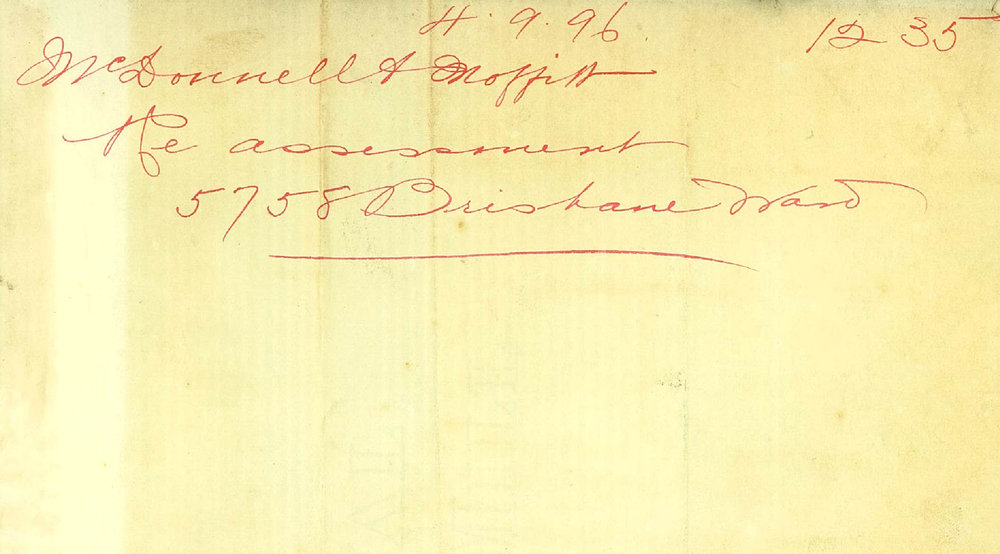 4.9.96. 1235
McDonnell & Moffitt
Re assessment
5758 Brisbane Ward